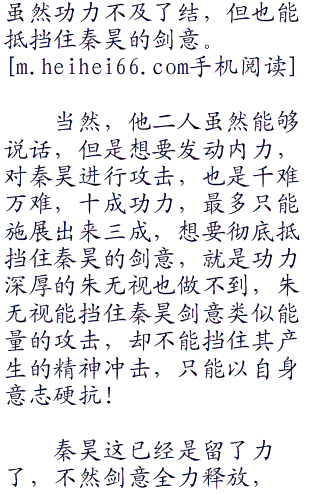 虽然功力不及了结，但也能
抵挡住秦昊的剑意。
[m.heihei66.com手机阅读]
当然，他二人虽然能够
说话，但是想要发动内力，
对秦昊进行攻击，也是千难
万难，十成功力，最多只能
施展出来三成，想要彻底抵
挡住秦昊的剑意，就是功力
深厚的朱无视也做不到，朱
无视能挡住秦昊剑意类似能
量的攻击，却不能挡住其产
生的精神冲击，只能以自身
意志硬抗！
秦昊这已经是留了力
了，不然剑意全力释放，